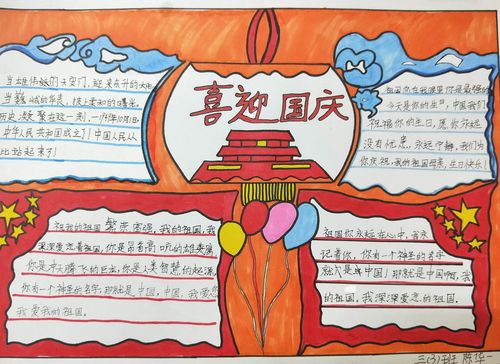 喜迎国庆
当雄伟的天安门,迎来东升的太阳
当巍峨的华表,披上柔和的曙光,
历史凝聚在这一刻,一九四九年10月1日
中华人民共和国成立了!中国人民从
此站起来了!
祖国您在我眼里你是最强的
今天是你的生日,中国我们
祝福你的生日,愿你永远
没有忧患,永远宁静,我们为
你庆祝,我的祖国母亲,生日快乐!
祝我的祖国繁荣富强,我的祖国,我
深深爱恋着祖国,你是昂首高吭的雄鸡
你是冲天腾飞的巨龙,你是人类智慧的起源,
你有一个神圣的名字,那就是中国,中国,我爱您
我爱我的祖国.
祖国你永远在心中,
记着你,你有一个神圣的名字
就是中国!那就是中国啊,我
的祖国,我深深爱恋的祖国.
三(3)班 陈华一